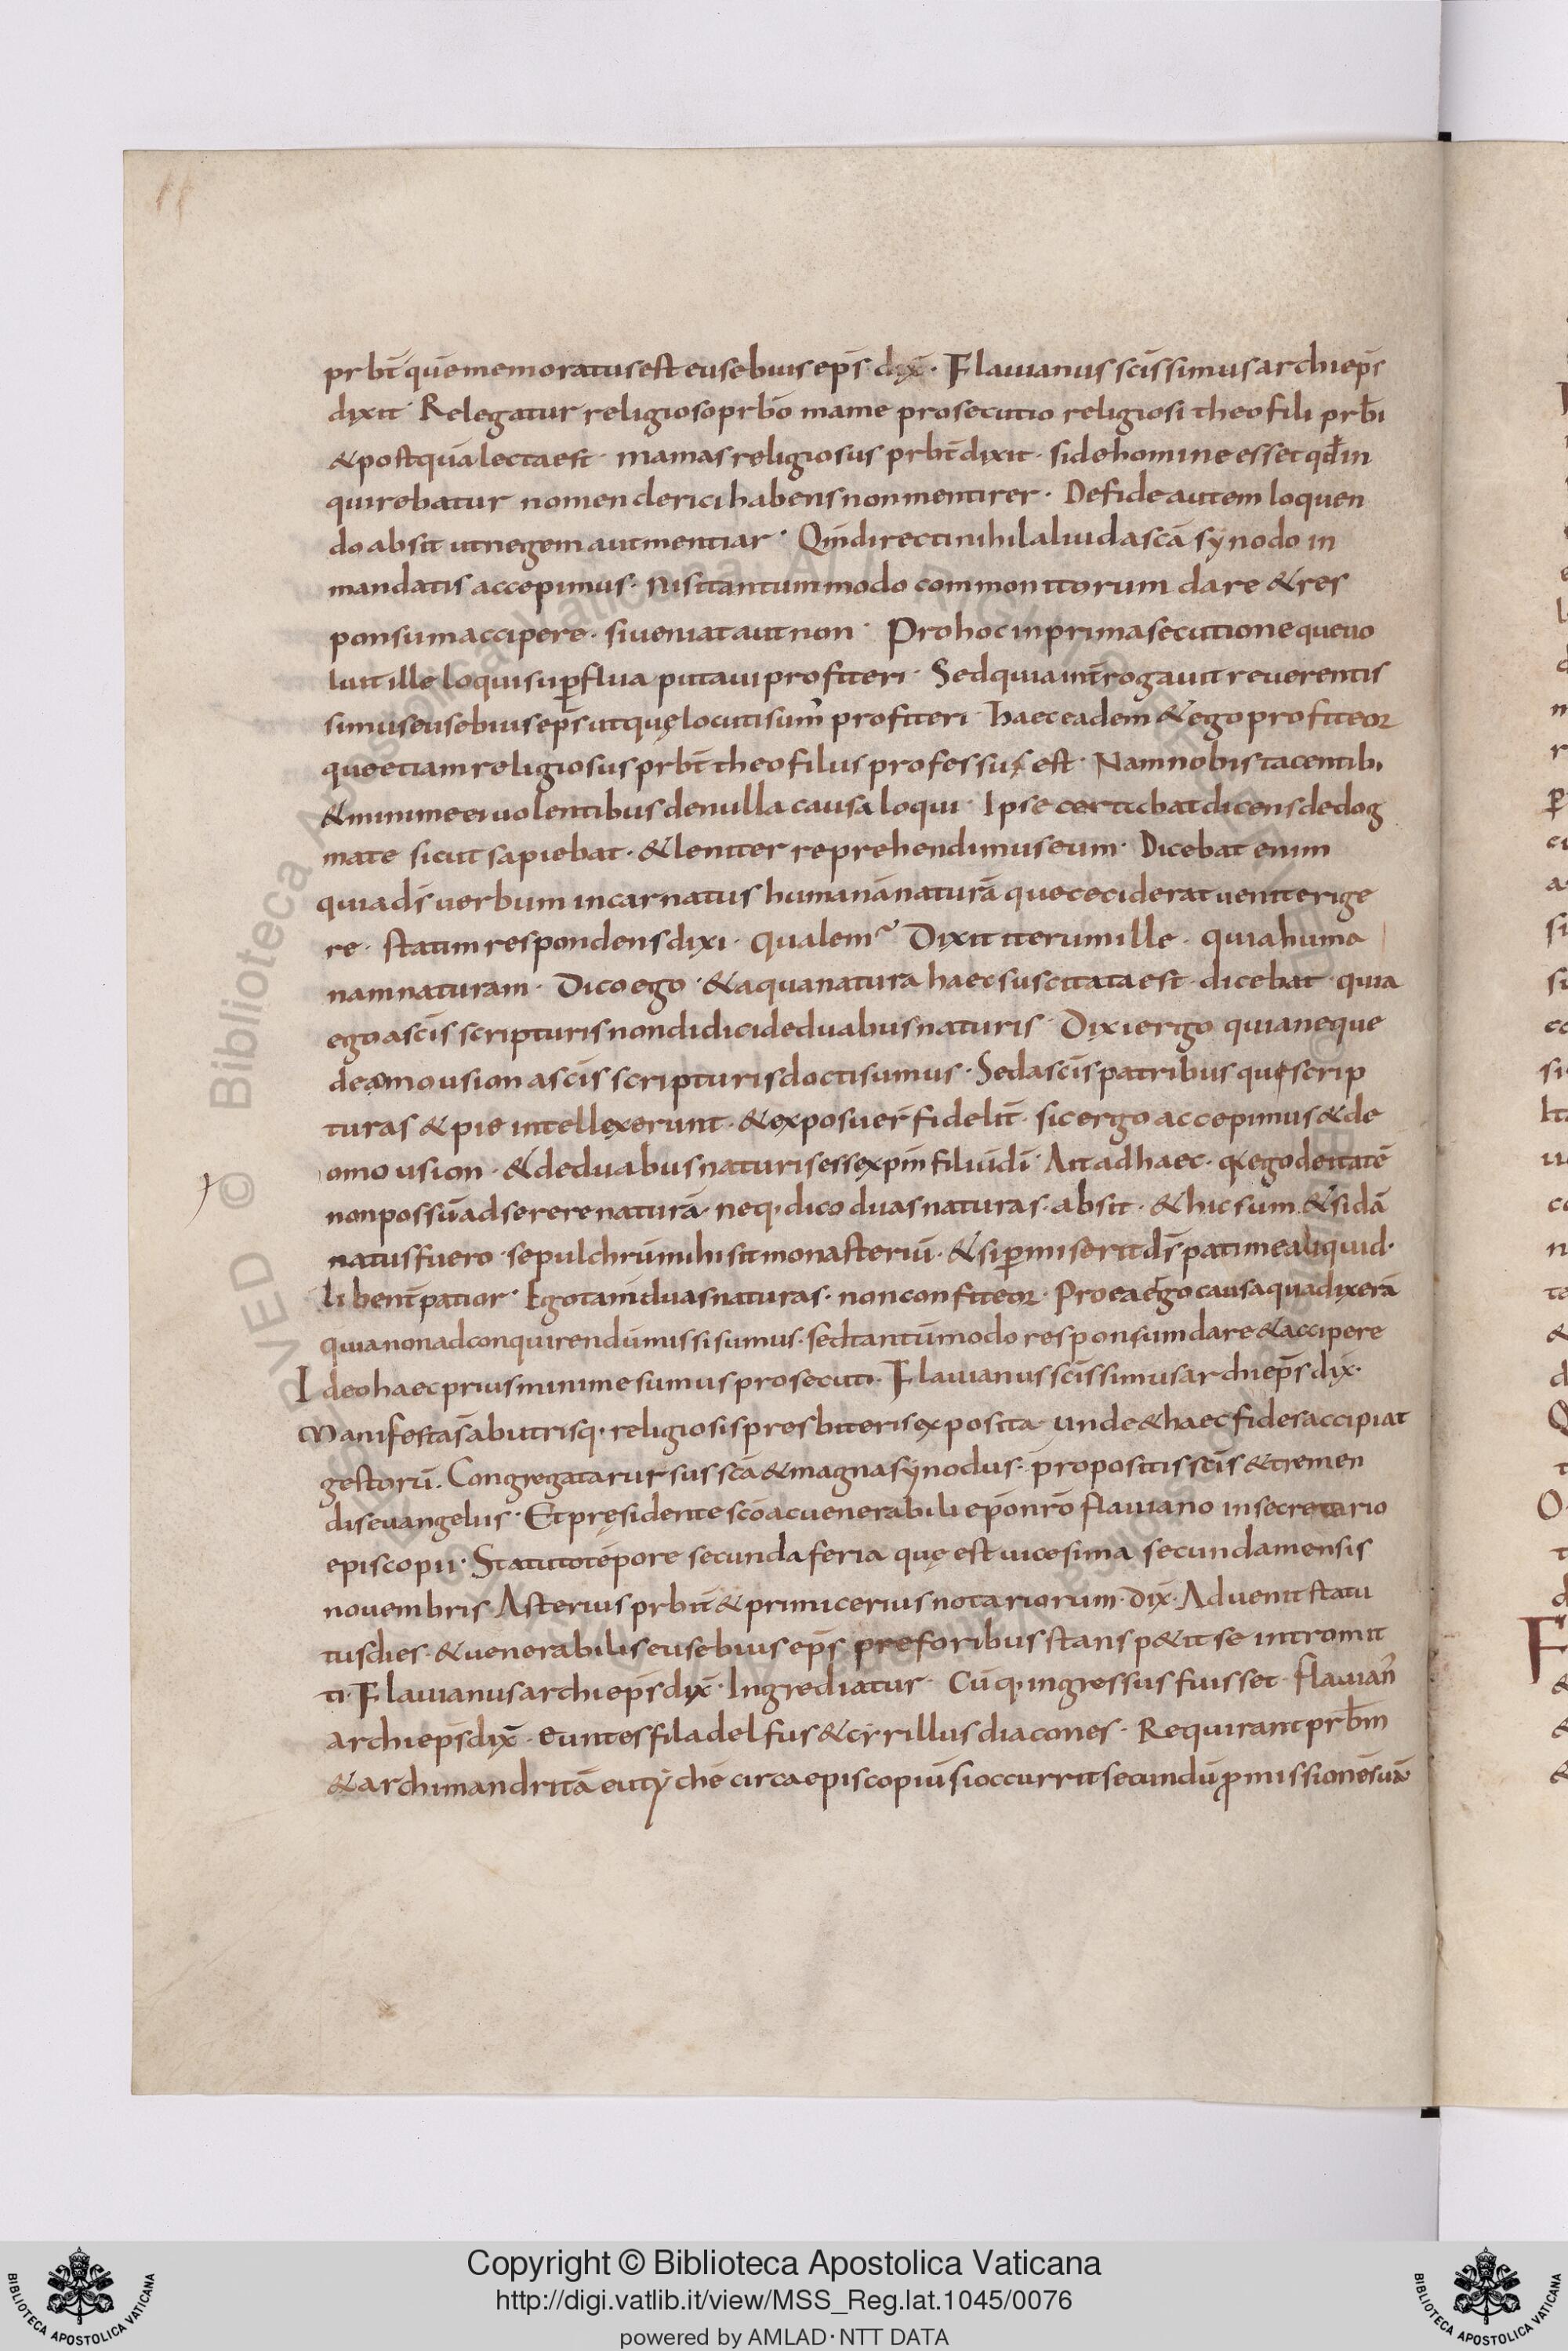 prbt̄ quē memoratus est eusebius ep̄s dix̄ · Flauianus sc̄issimus archiep̄s
dixit · Relegatur religioso prb̄o mame prosecutio religiosi theofili prb̄i
& postquā lecta est · mamas religiosus prbt̄ dixit · si de homine esset qd̄ in
quirebatur nomen clerici habens non mentirer · De fide autem loquen
do absit ut negem aut mentiar · Qm̄ directi nihil aliud a sc̄a synodo in
mandatis accepimus · nisi tantummodo commonitorum dare & res
ponsum accipere · si ueniat aut non · Pro hoc in prima secutione que uo
luit ille loqui sup̱flua putaui profiteri · Sed quia int̄rogauit reuerentis
simus eusebius ep̄s ut quę locuti sum̕ profiteri · haec eadem & ego profiteor
que etiam religiosus prbt̄ theofilus professus est · Nam nobis tacentib;
& minime ei uolentibus de nulla causa loqui · Ipse certabat dicens de dog
mate sicut sapiebat · & leniter reprehendimus eum · Dicebat enim
quia ds̄ uerbum incarnatus humanā naturā que ceciderat uenit erige
re · statim respondens dixi · qualem · Dixit iterum ille · quia huma
nam naturam · Dico ego · & a qua natura haec suscitata est · dicebat · quia
ego a sc̄is scripturis non didici de duabus naturis · Dixi ergo quia neque
de omousion a sc̄is scripturis docti sumus · Sed a sc̄is patribus qui scrip
turas & pie intellexerunt · & exposuer̄ fidelit̄ · sic ergo accepimus & de
omousion · & de duabus naturis esse xp̄m filiū dī · Ait ad haec · ego deitatē
non possū adserere naturā neq; dico duas naturas · absit · & hic sum & si dā
natus fuero · sepulchrū mihi sit monasteriū · & si p̱miserit ds̄ pati me aliquid ·
libent̄ patior · Ego tam̄ duas naturas · non confiteor · Pro ea ergo causa qua dixerā
quia non ad conquirendū missi sumus · sed tantūmodo responsum dare & accipere
Ideo haec prius minime sumus prosecuti · Flauianus sc̄issimus archiep̄s dix̄ ·
Manifesta s̄ ab utrisq; religiosis presbiteris exposita unde & haec fides accipiat
gestorū · Congregata rursus sc̄a & magna synodus · propositis sc̄is & tremen
dis euangeliis · Et pręsidente sc̄o ac uenerabili ep̄o nr̄o flauiano in secretario
episcopii · Statuto tēpore secunda feria quę est uicesima secunda mensis
nouembris Asterius prbt̄ & primicerius notariorum · dix̄ · Aduenit statu
tus dies · & uenerabilis eusebius ep̄s pre foribus stans p&it se intromit
ti · Flauianus archiep̄s dix̄ · Ingrediatur · Cūq; ingressus fuisset · flauian̕
archiep̄s dix̄ · euntes filadelfus & cyrillus diacones · Requirant prb̄m
& archimandritā eutychē circa episcopiū si occurrit secundū promissionē suā ·
Copyright © Biblioteca Apostolica Vaticana
http://digi.vatlib.it/view/MSS_Reg.lat.1045/0076
powered by AMLAD·NTT DATA
BIBLIOTECA APOSTOLICA VATICANA
BIBLIOTECA APOSTOLICA VATICANA